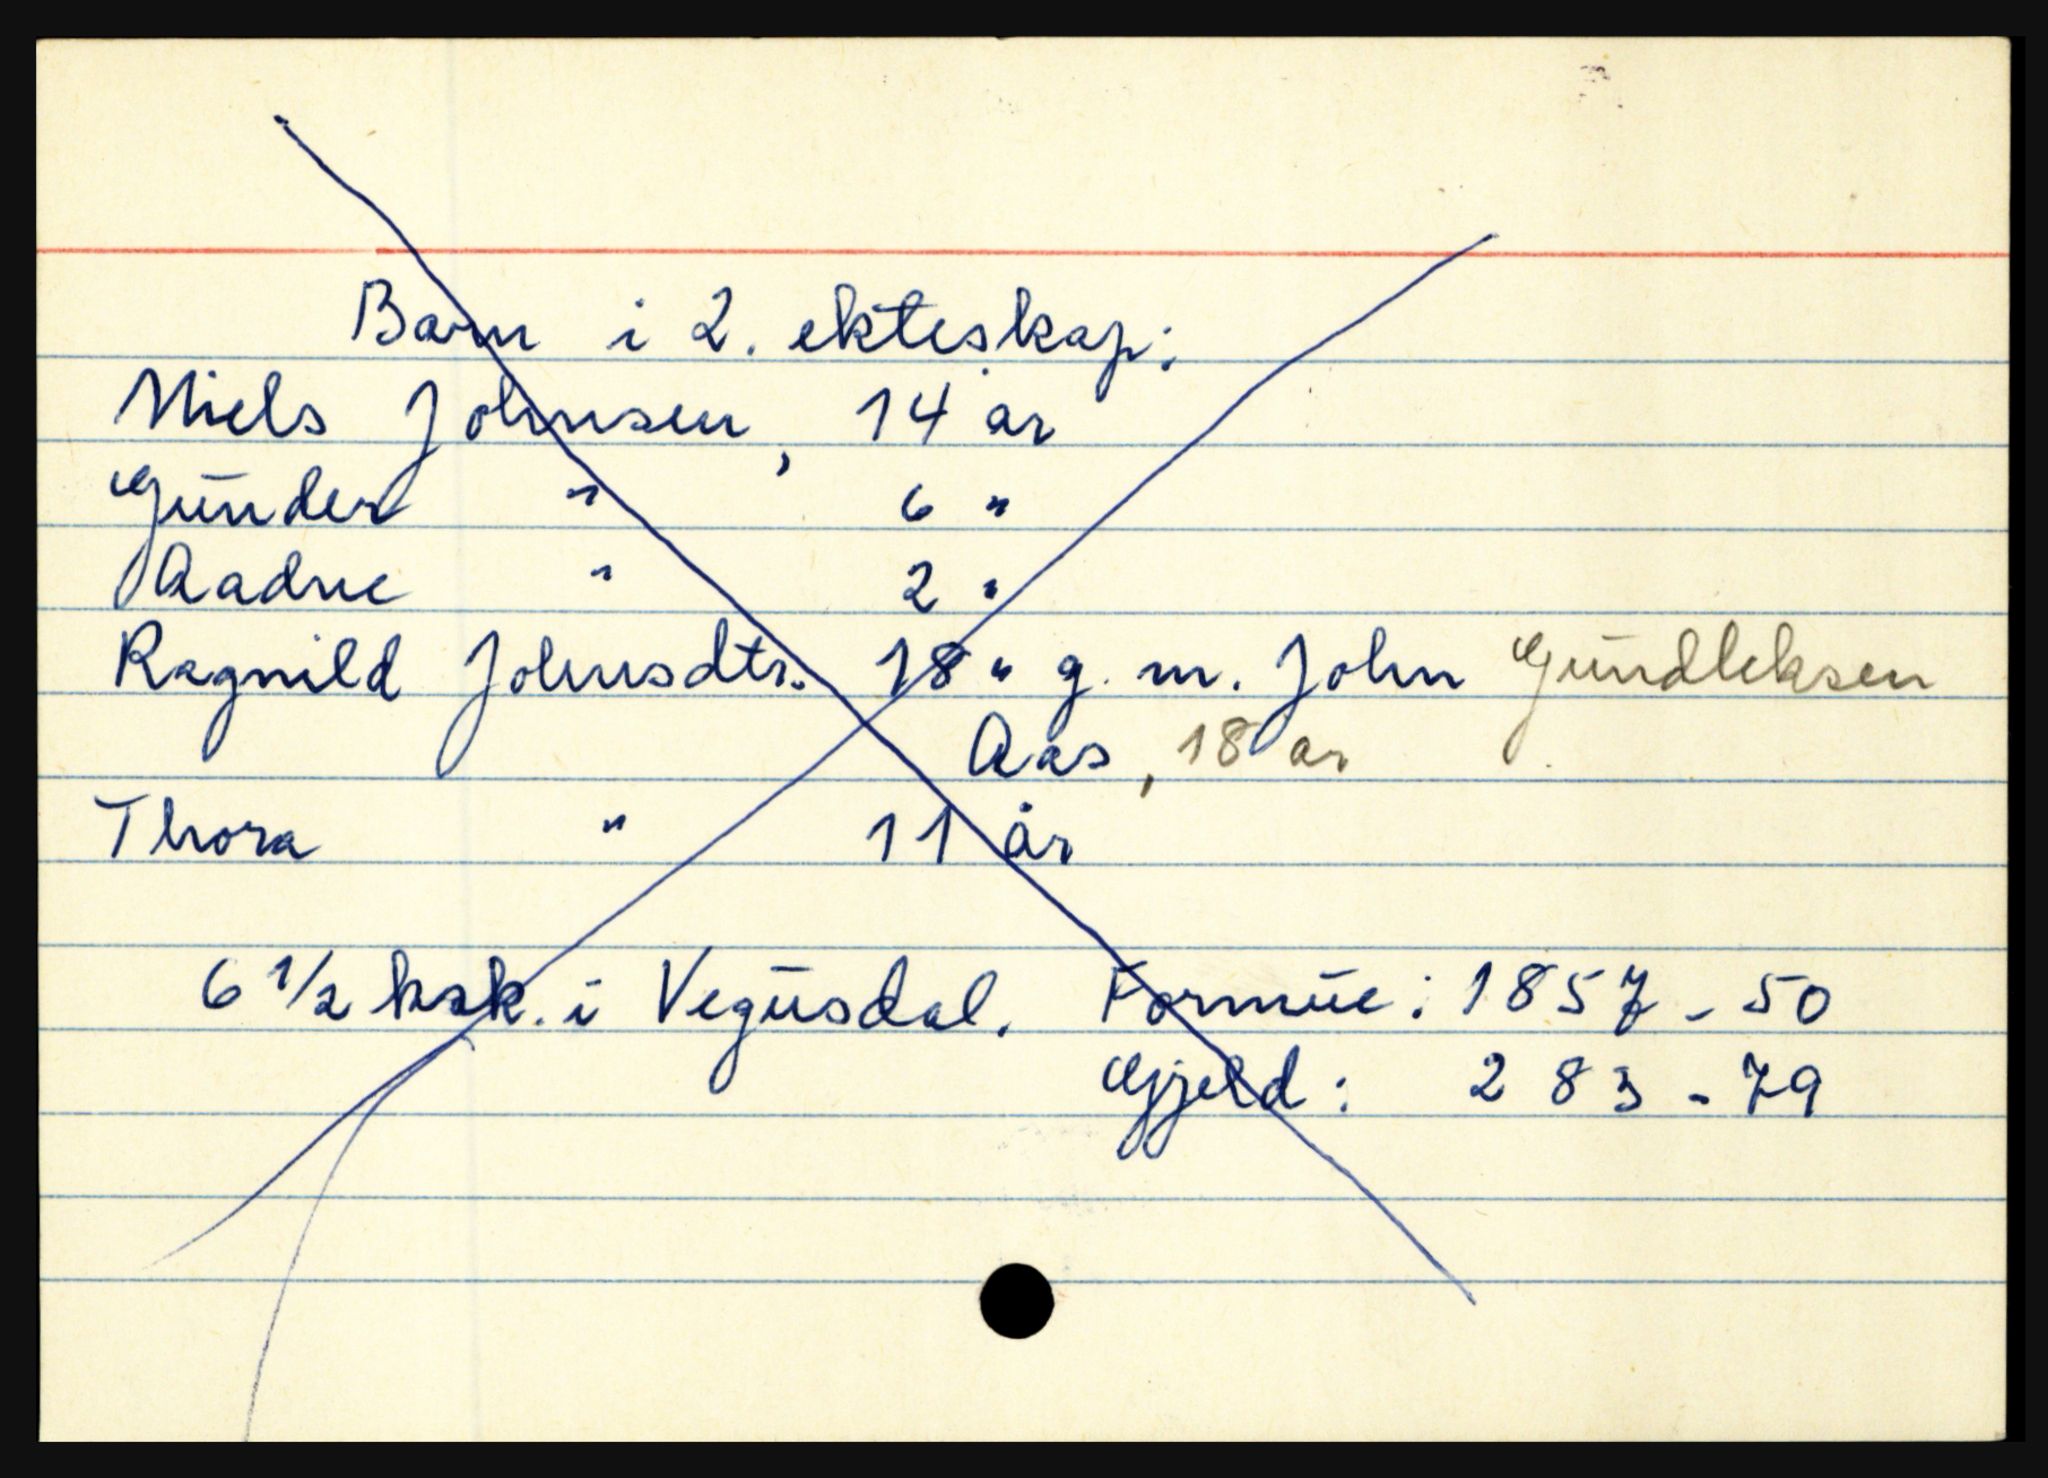 Barn i 2. ekteskap:
Niels Johnsen, 14 år
Gunder " 6 "
Aadne " 2 "
Ragnild Johnsdtr. 18 " g. m. John Gundleksen
Aas, 18 år
Thora " 11 år
6 1/2 ksk. i Vegusdal. Formue: 1857 - 50
Gjeld: 283 - 79